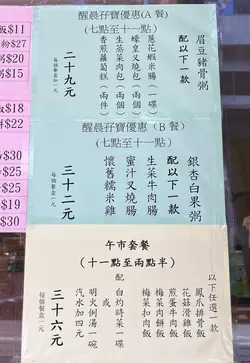 醒晨孖寶優惠(A餐)
(七點至十一點)
眉豆豬骨粥
配以下一款
蔥花蝦米腸(一碟)
蠔皇叉燒包(兩個)
生菜菜肉包(兩個)
香煎蘿蔔糕(兩件)
二十九元
每個餐盒加一元
醒晨孖寶優惠(B餐)
(七點至十一點)
銀杏白果粥
配以下一款
生菜牛肉腸
蜜汁叉燒腸
懷舊糯米雞
三十二元
每個餐盒一元
午市套餐
(十一點至兩點半)
以下任選一款
鳳爪排骨飯
花菇滑雞飯
煎蛋牛肉飯
梅菜肉餅飯
梅菜扣肉飯
配
白灼時菜一碟
或
明火例湯一碗
汽水加四元
三十六元
每個餐盒一元
飯$11
粉$27
粥$15
$15
飯$18
$22
$30
$25
$30
$30